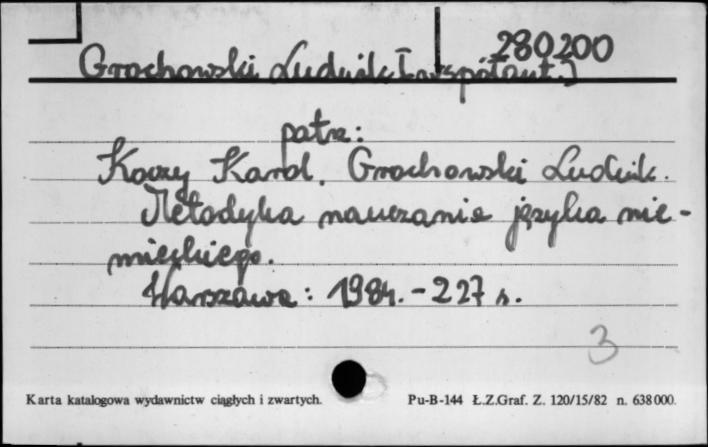 280200
Grochowski Ludwik [współaut.]
patrz:
Koczy Karol, Grochowski Ludwik.
Metodyka nauczania języka nie-
mieckiego.
Warszawa: 1984. - 227 s.
3
Karta katalogowa wydawnictw ciągłych i zwartych. Pu-B-144 Ł.Z.Graf. Z. 120/15/82 n. 638000.